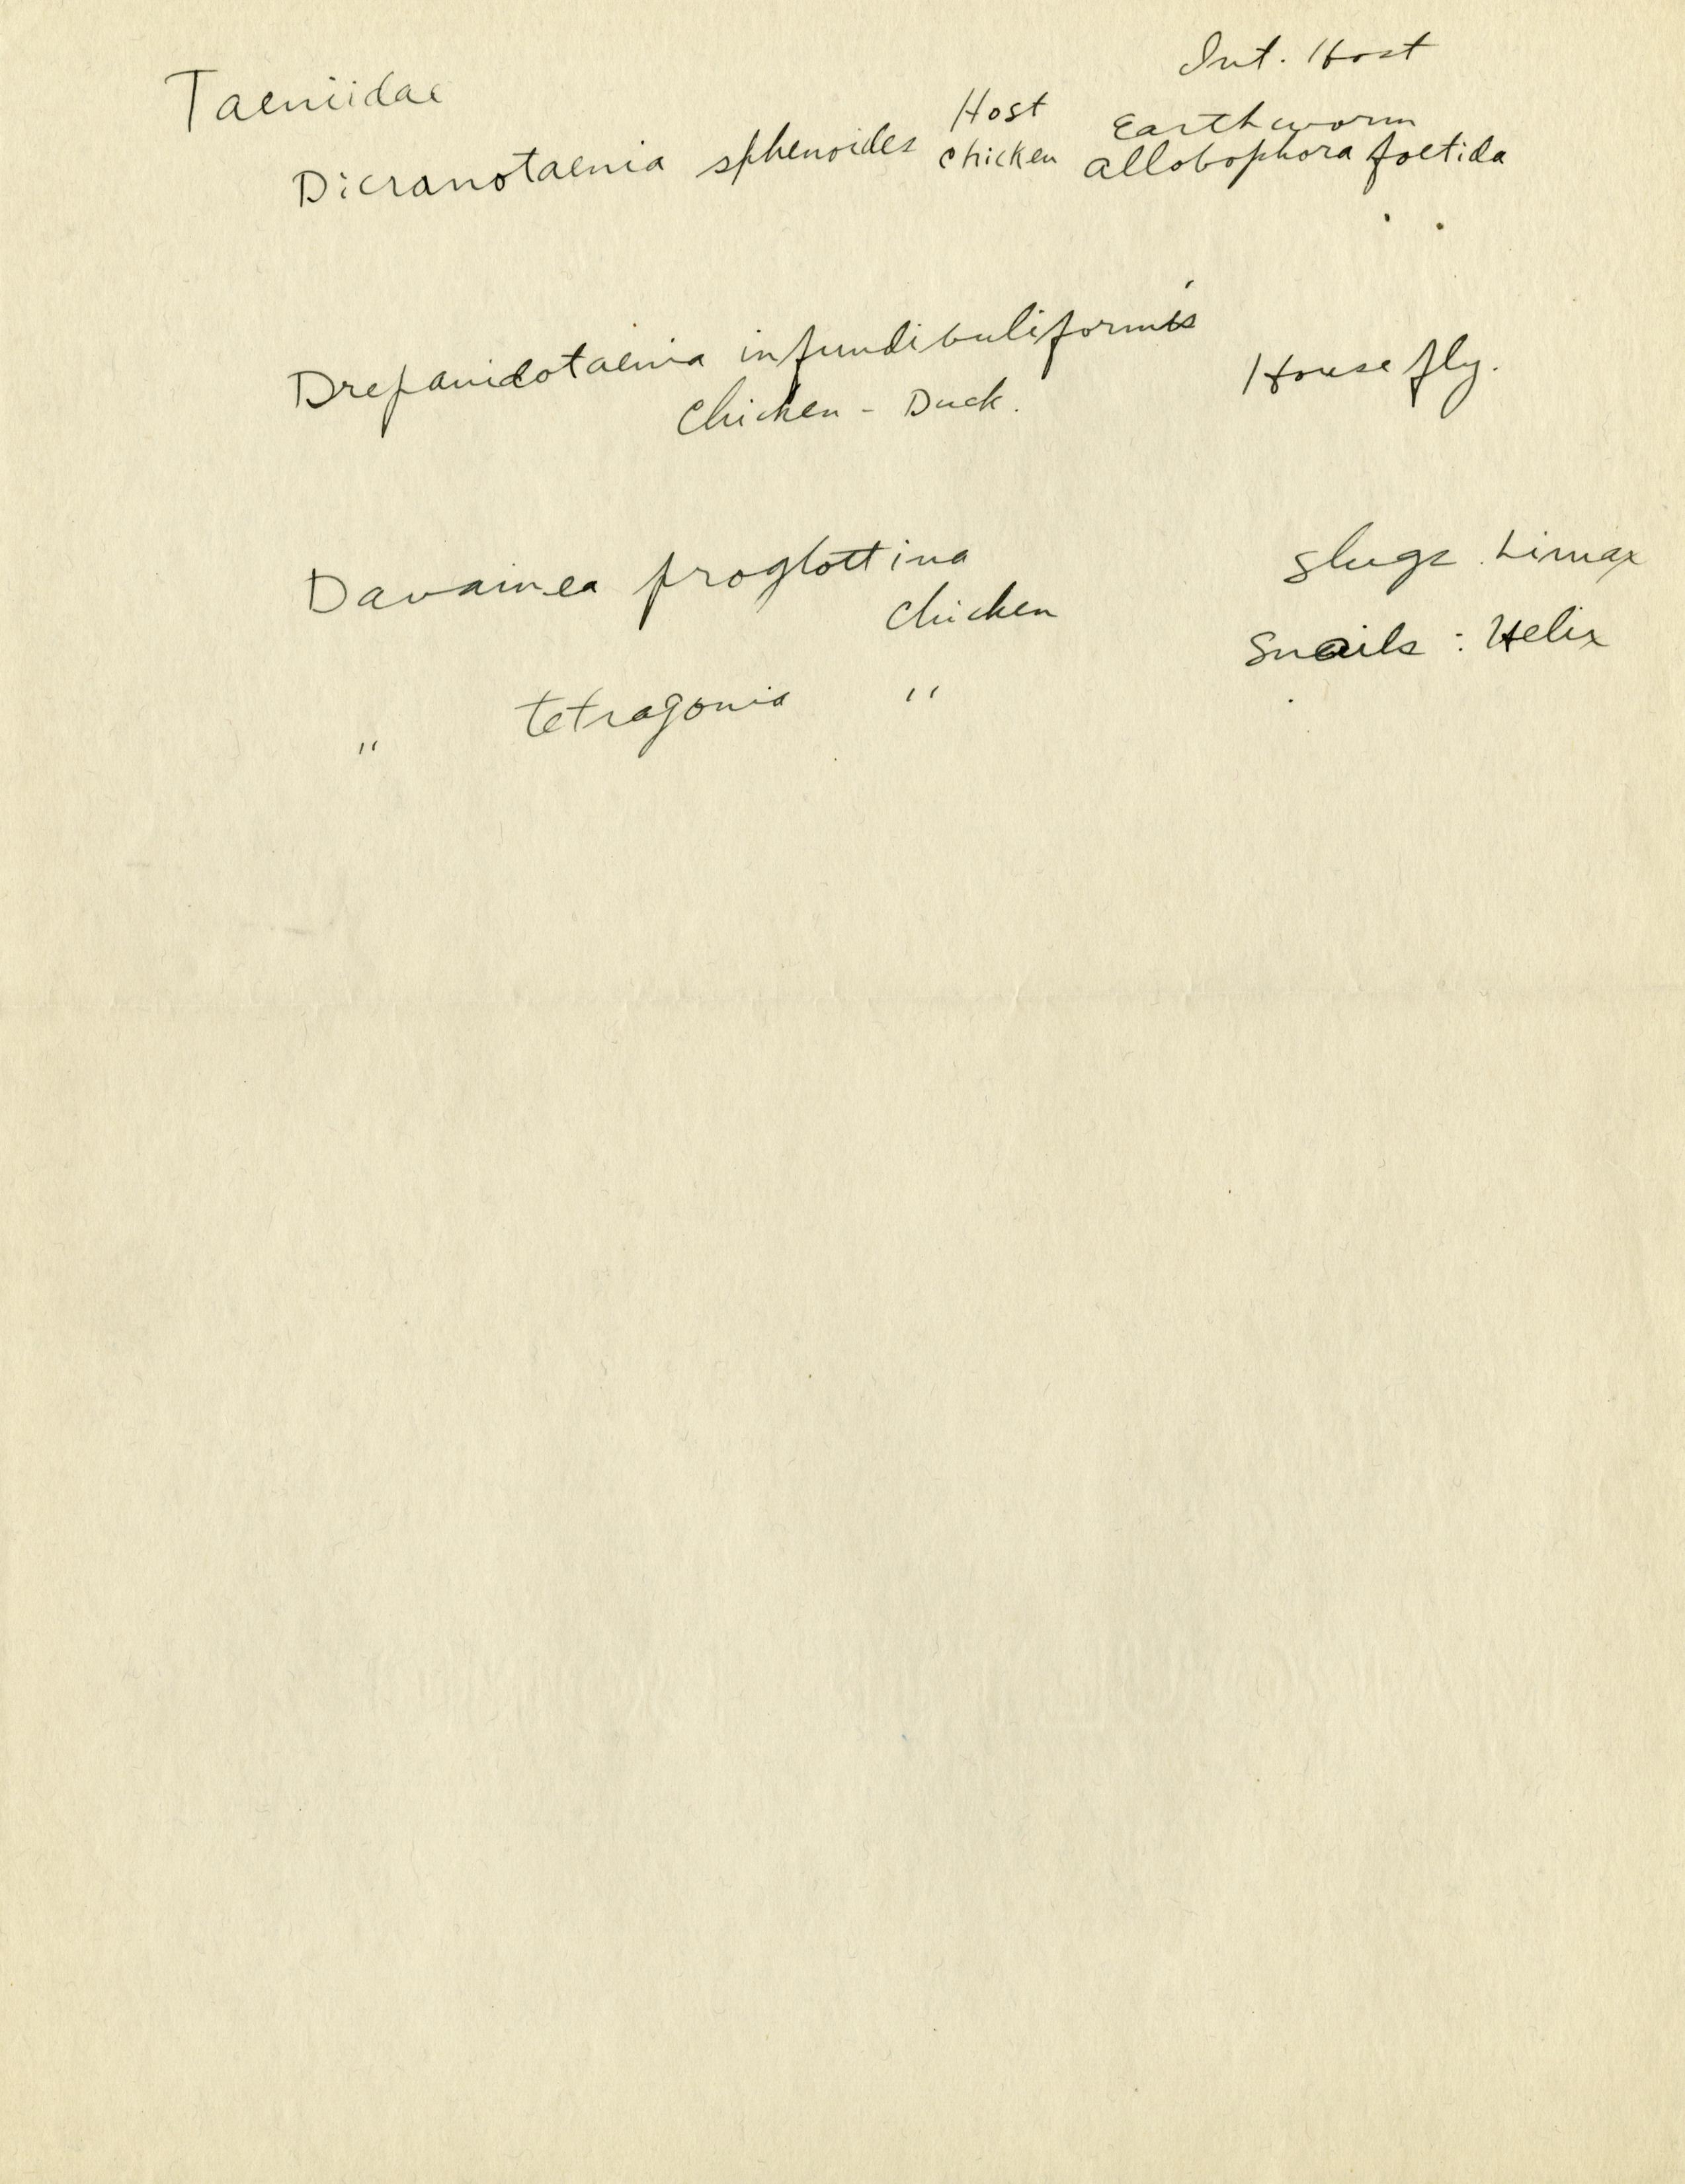 Int. Host
Taeniidae
Host Earthworm
Dicranotaenia sphenoides chicken allobophora foetida
Drepanidotaenia infundibuliformis House fly.
Chicken - Duck.
Davainea proglottina slugs Limax
chicken
Snails : Helix
" tetragonia "